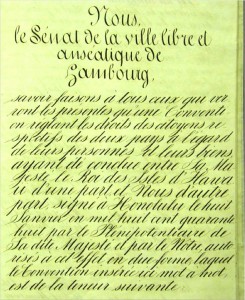 Nous,
le Sénat de la ville libre et
anséatique de
Hambourg,
savoir faisons à tous ceux qui ver
ront les présentes qu'une Conventi
on réglant les droits des citoyens re
spectifs des deux pays à l'égard
de leurs personnes et leurs biens
ayant été conclue entre Sa Ma
jesté le Roi des Isles d'Hawai
i d'une part et Nous d'autre
part, signé à Honolulu le huit
Janvier en mil huit cent quarante
huit par le Plénipotentiaire de
Sa dite Majesté et par le Nôtre, auto
risés à cet effet en due forme, laquel
le Convention insérée ici mot à mot
est de la teneur suivante